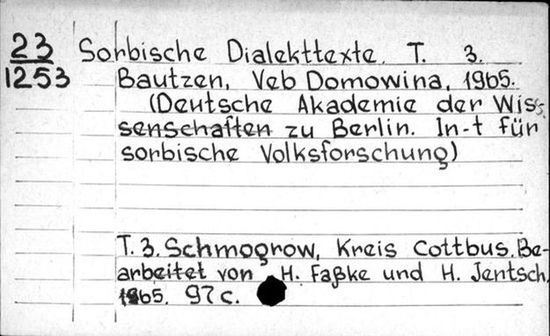 23 Sorbische Dialekttexte. T. 3.
1253 Bautzen, Veb Domowina, 1965.
(Deutsche Akademie der Wis-
senschaften zu Berlin. In-t für
sorbische Volksforschung)
T. 3. Schmogrow, Kreis Cottbus. Be-
arbeitet von H. Faßke und H. Jentsch,
1965. 97 c.